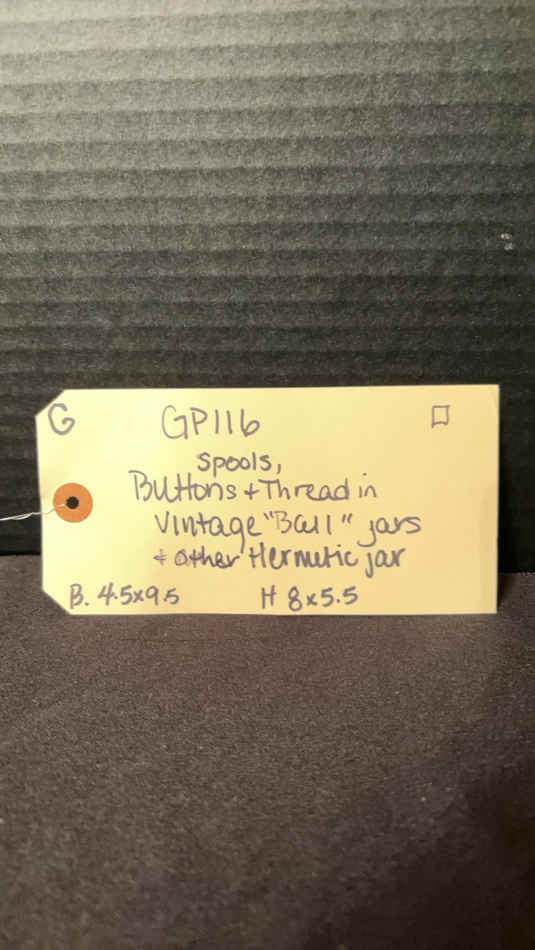 G GP116
Spools,
Buttons + Thread in
Vintage "Ball" jars
+ other Hermetic jar
B. 4.5x9.5 H 8x5.5